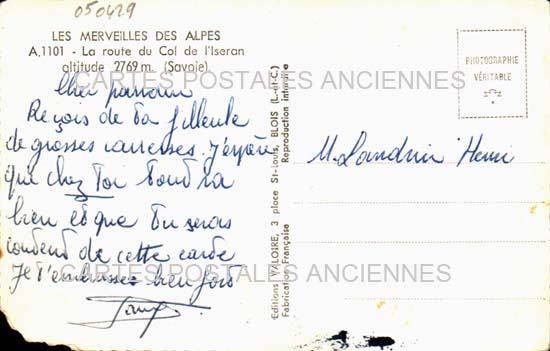 050429
LES MERVEILLES DES ALPES
A.1101 - La route du Col de l'Iseran
altitude 2769 m. (Savoie)
CARTES POSTALES ANCIENNES
Cher parrain
Reçois de ta filleule
de grosses carresses. J'espère
que chez Toi tout va
bien et que Tu seras
content de cette carte
Je t'embrasse bien fort
Editions VALOIRE, 3 place St-Louis, BLOIS (L.-et-C.)
Fabrication Française Reproduction interdite
PHOTOGRAPHIE
VÉRITABLE
M. Landrin Henri
CARTES POSTALES ANCIENNES